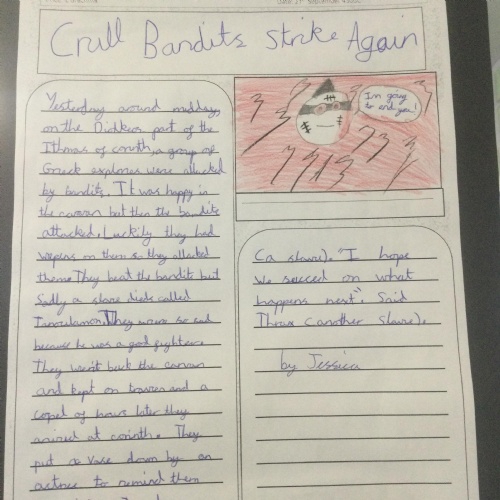 Crull Bandits Strike Again
Yesterday around midday,
on the part of the
Ithmas of corith, a group of
Greek explores were attacked
by bandits. It was happy in
the caravan but then the bandits
attacked. Luckily they had
wepens on them so they attacked
them. They beat the bandits but
Sadly a slave died called
They were so sad
because he was a good fighter.
They went back the carvan
and kept on traveling and a
copel of hours later they
arived at corinth. They
put a vase down by an
to remind them
I'm going
to end you!
(a slave). "I hope
we on what
happens next". Said
Thrax (another slave).
by Jessica